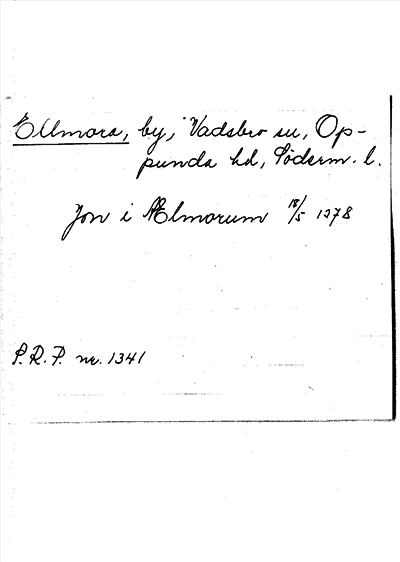 Ellmora, by, Vadsbro sn, Op-
punda hd, Söderm. l.
Jon i Ælmorum 18/5 1378
P.R.P. nr. 1341